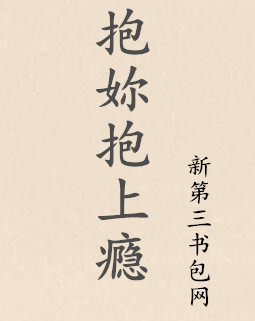 抱妳抱上瘾
新第三书包网